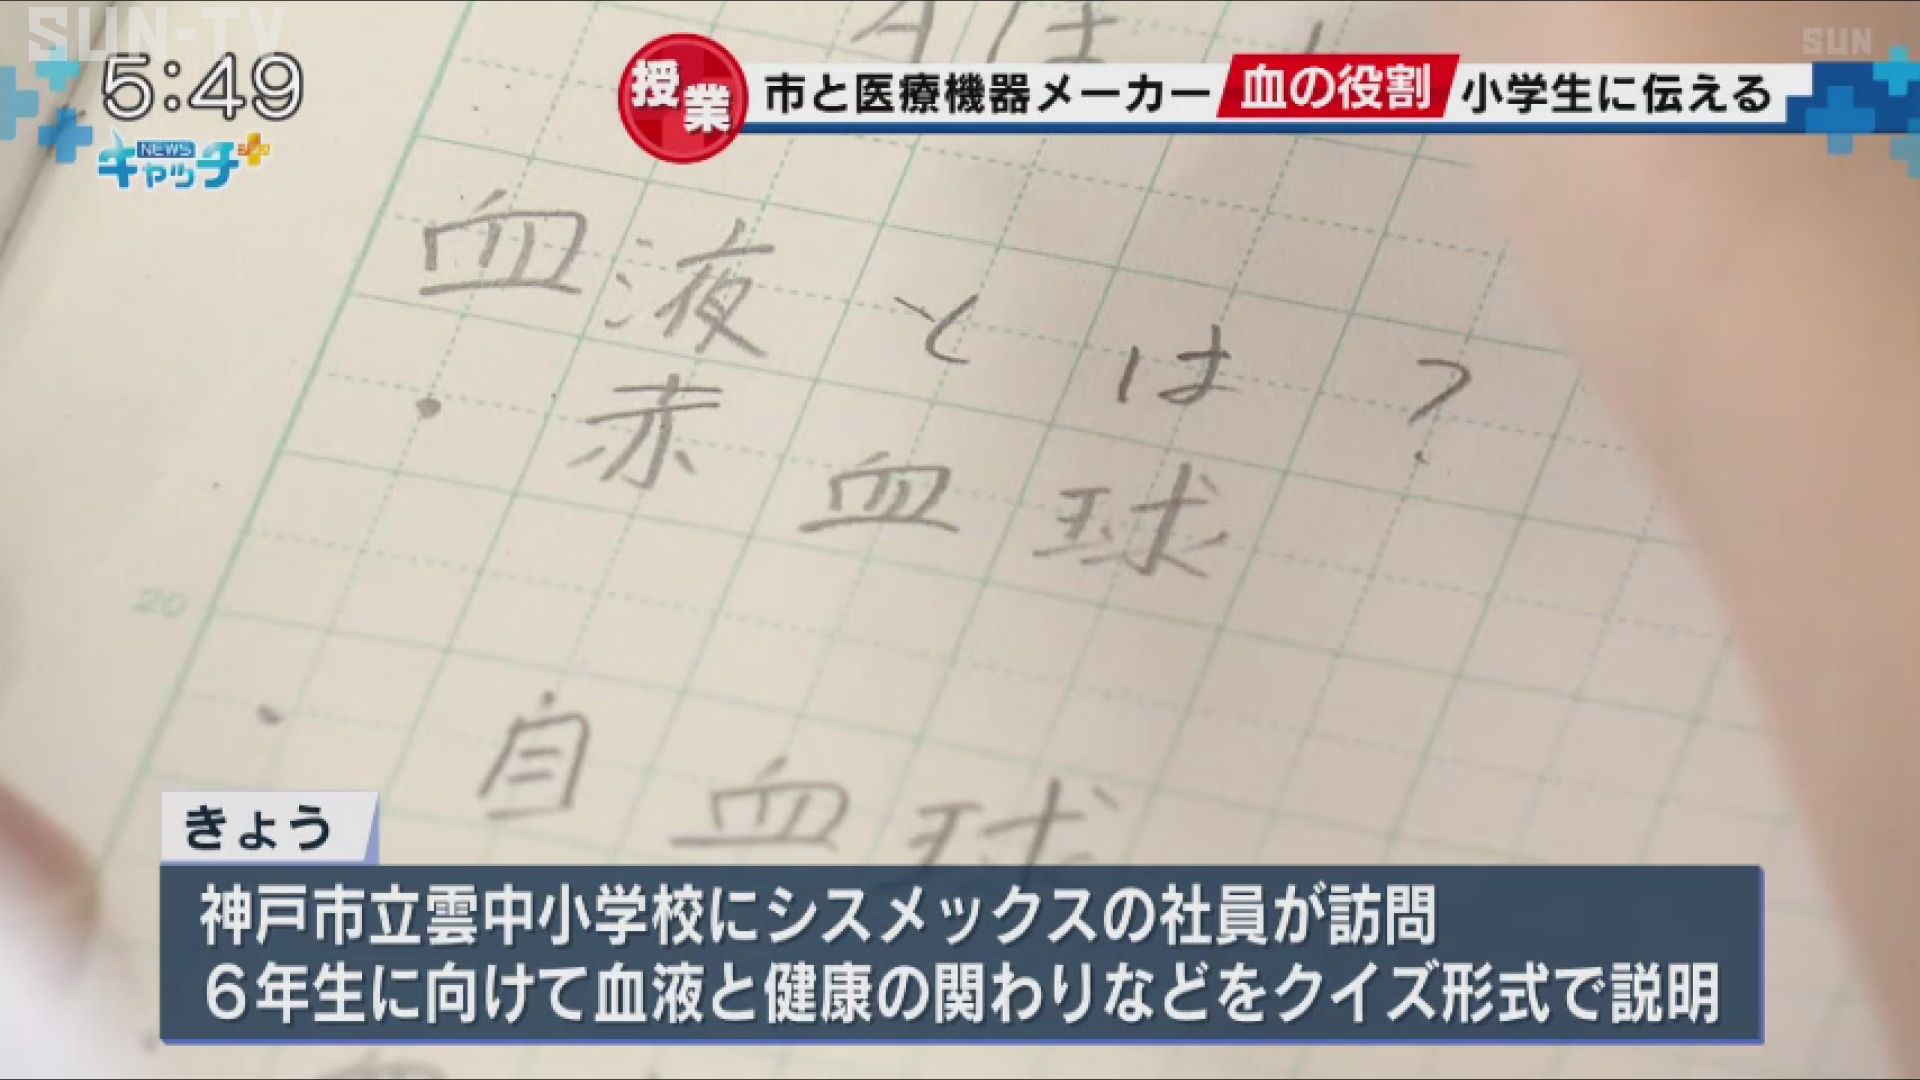 SUN-TV
SUN
5:49
NEWS
キャッチ+
授業
市と医療機器メーカー 血の役割 小学生に伝える
血液とは?
・赤血球
20
・自血球
きょう
神戸市立雲中小学校にシスメックスの社員が訪問
6年生に向けて血液と健康の関わりなどをクイズ形式で説明